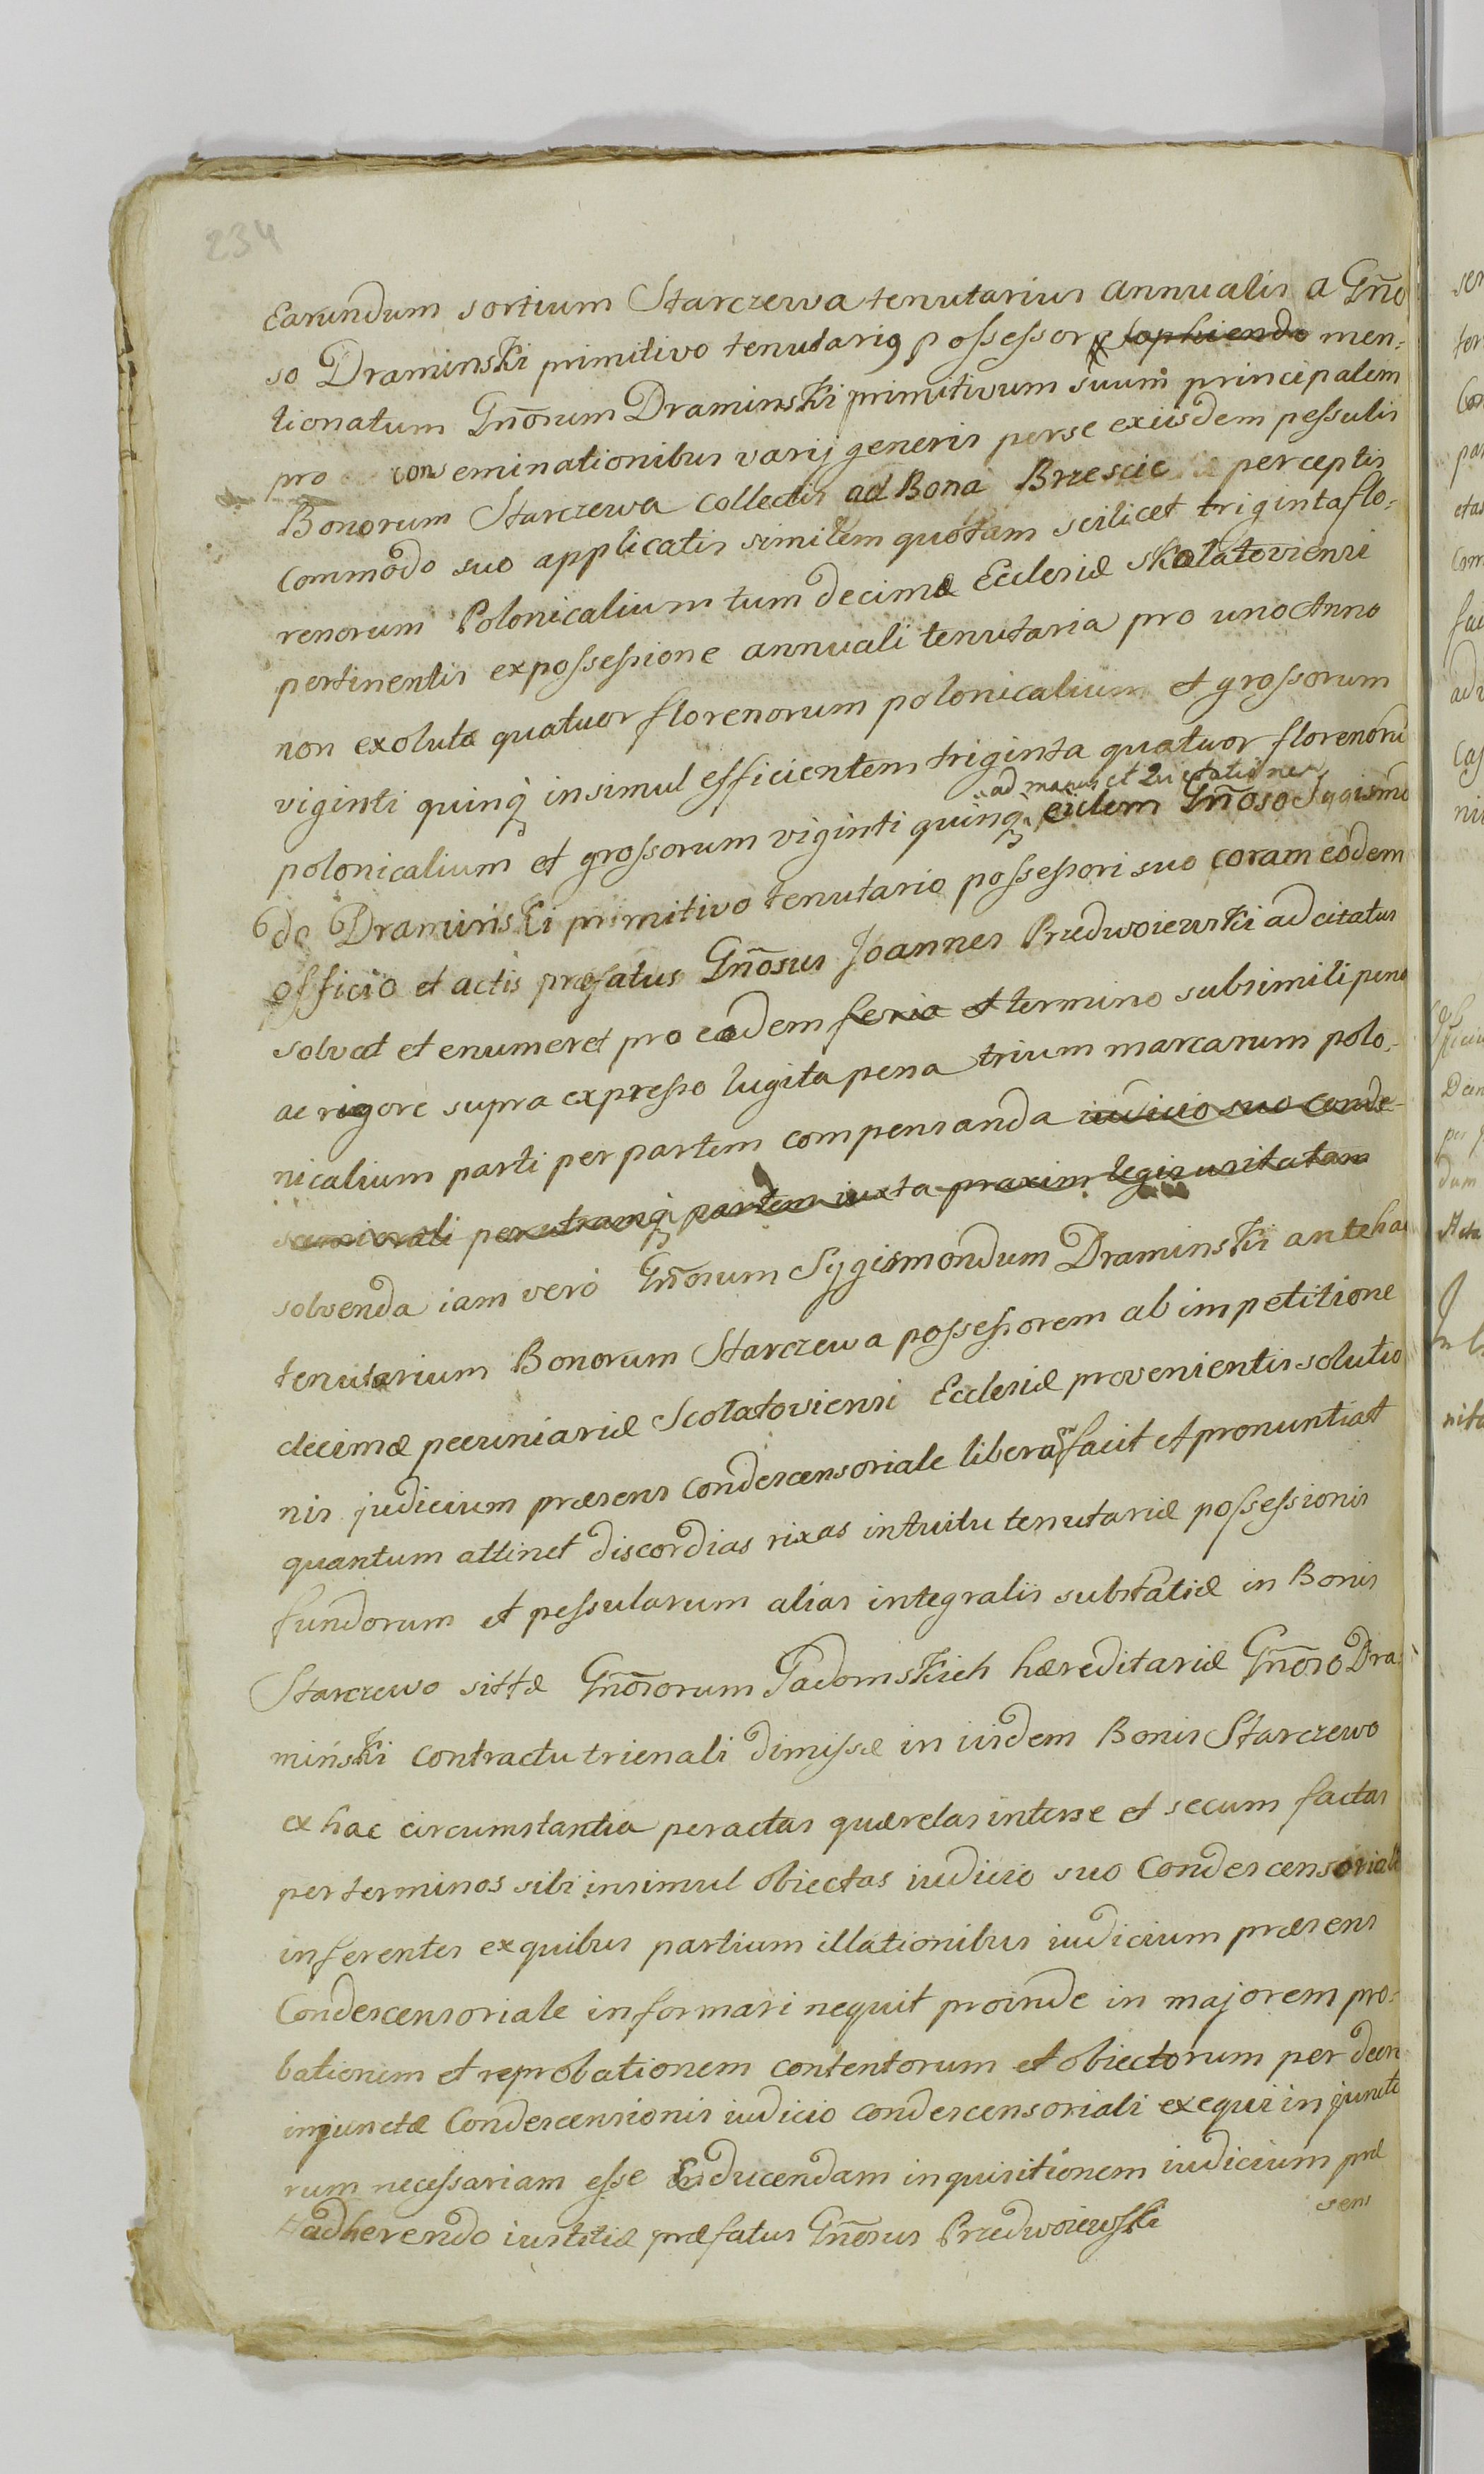 234
Earundum sortium Starczewa tenutarius annualis a Gn̄o
so Draminski primitivo tenutario possessore men:
tionatum Gn̄osum Draminski primitivum suum principalem
pro conseminationibus varij generis per se ex iisdem pessulis
Bonorum Starczewa collectis ad Bona Brzescie perceptis
commodo suo applicatis similem quotam scilicet triginta flo:
renorum Polonicalium tum decimæ Ecclesiæ Skolatoviensi
pertinentis ex possessione annuali tenutaria pro uno Anno
non exolutæ quatuor florenorum polonicalium et grossorum
viginti quinq̨ insimul efficientem triginta quatuor florenorū
ad manus et Quietationem
polonicalium et grossorum viginti quinq̨ eidem Gn̄oso Sygismū
do Draminski primitivo tenutario possessori suo coram eodem
officio et actis præfatus Gn̄osus Joannes Przedwoiewski adcitatus
solvat et enumeret pro eadem feria et termino sub simili pena
ac rigore supra expresso lugita pena trium marcarum polo:
nicalium parti per partem compensanda iudicio suo conde-
scensoriali per utramq̨ partem iuxta praxim legis usitatam
solvenda iam vero Gn̄osum Sygismondum Draminski antehac
tenutarium Bonorum Starczewa possessorem ab impetitione
decimæ pecuniariæ Scolatoviensi Ecclesiæ provenientis solutio
nis judicium præsens condescensoriale liberum facit et pronuntiat
quantum attinet discordias rixas intuitu tenutariæ possessionis
fundorum et pessularum alias integralis substātiæ in Bonis
Starczewo sittæ Gn̄osorum Gadomskich hæreditariæ Gn̄oso Dra:
miński contractu trienali dimissæ in iisdem Bonis Starczewo
ex hac circumstantia peractas quærelas inter se et secum factas
per terminos sibi insimul obiectas iudicio suo Condescensoriali
inferentes ex quibus partium illationibus iudicium præsens
Condescensoriale informari nequit proinde in majorem pro:
bationem et reprobationem contentorum et obiectorum per decre
injunctæ Condescensionis iudicio condescensoriali exequi injuncto
rum necessariam esse Educendam inquisitionem iudicium præ
sens
adherendo iustitiæ præfatus Gn̄osus Przedwoiewski